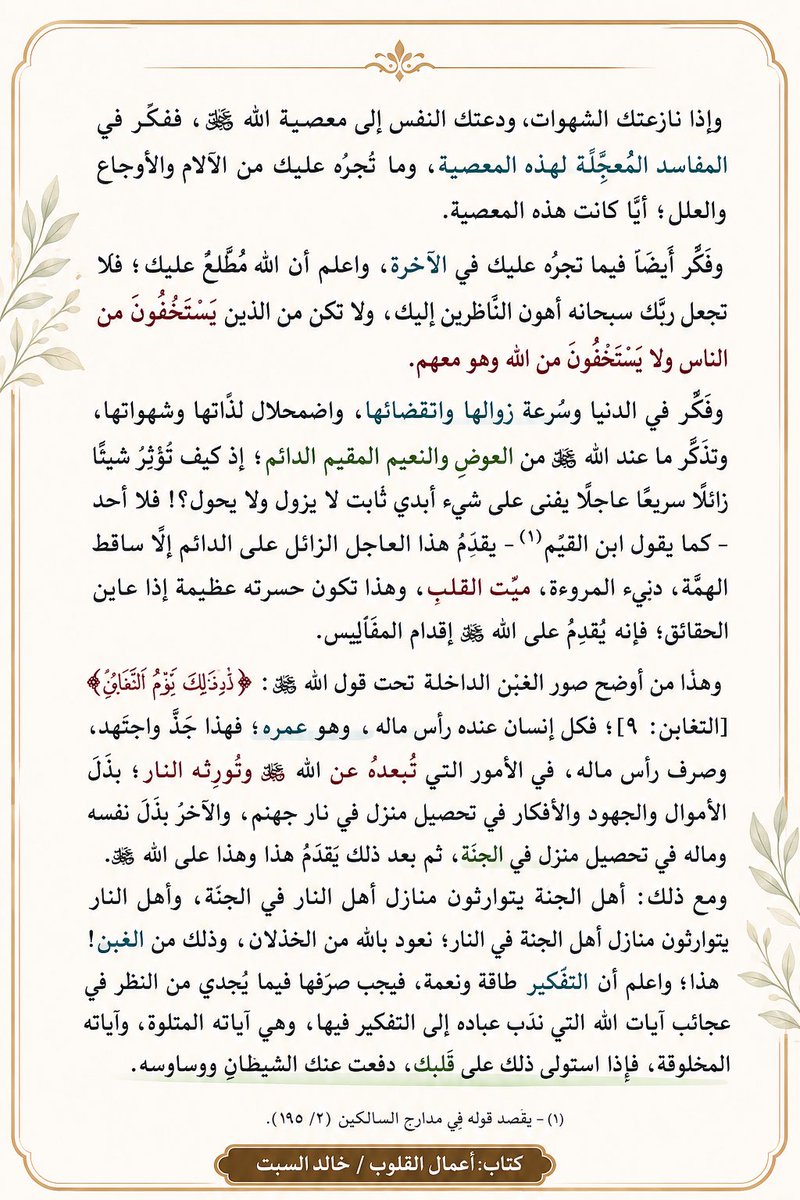 وإذا نازعتك الشهوات، ودعتك النفس إلى معصية الله ﷻ، ففكِّر في
المفاسد المُعجَّلَة لهذه المعصية، وما تُجرُه عليك من الآلام والأوجاع
والعلل؛ أيًّا كانت هذه المعصية.
وفَكِّر أَيضَاً فيما تجرُه عليك في الآخرة، واعلم أن الله مُطَّلعٌ عليك؛ فلا
تجعل ربَّك سبحانه أهون النَّاظرين إليك، ولا تكن من الذين يَسْتَخْفُونَ من
الناس ولا يَسْتَخْفُونَ من الله وهو معهم.
وفَكِّر في الدنيا وسُرعة زوالها واتقضائها، واضمحلال لذَّاتها وشهواتها،
وتذَكَّر ما عند الله ﷻ من العوضِ والنعيم المقيم الدائم؛ إذ كيف تُؤْثِرُ شيئًا
زائلًا سريعًا عاجلًا يفنى على شيء أبدي ثابت لا يزول ولا يحول؟! فلا أحد
- كما يقول ابن القيِّم(١) - يقدِمُ هذا العاجل الزائل على الدائم إلَّا ساقط
الهمَّة، دنِيء المروءة، ميِّت القلبِ، وهذا تكون حسرته عظيمة إذا عاين
الحقائق؛ فإنه يُقدِمُ على الله ﷻ إقدام المفَاًلِيس.
وهذُا من أوضح صور الغبْن الداخلة تحت قول الله ﷻ:
[التغابن: ٩]؛ فكل إنسان عنده رأس ماله، وهو عمره؛ فهذا جَدَّ واجتَهد،
وصرف رأس ماله، في الأمور التي تُبعدهُ عن الله ﷻ وتُورِثه النار؛ بذَلَ
الأموال والجهود والأفكار في تحصيل منزل في نار جهنم، والآخرُ بذَلَ نفسه
وماله في تحصيل منزل في الجنَة، ثم بعد ذلك يَقدَمُ هذا وهذا على الله ﷻ.
ومع ذلك: أهل الجنة يتوارثون منازل أهل النار في الجنَة، وأهل النار
يتوارثون منازل أهل الجنة في النار؛ نعود بالله من الخذلان، وذلك من الغبن!
هذا؛ واعلم أن التفَكير طاقة ونعمة، فيجب صرَفها فيما يُجدي من النظر في
عجائب آيات الله التي ندَب عباده إلى التفكير فيها، وهي آياته المتلوة، وآياته
المخلوقة، فإِذا استولى ذلك على قَلبك، دفعت عنك الشيظانِ ووساوسه.
(١) - يقَصد قوله فِي مدارج السالكين (٢/ ١٩٥).
كتاب: أعمال القلوب / خالد السبت